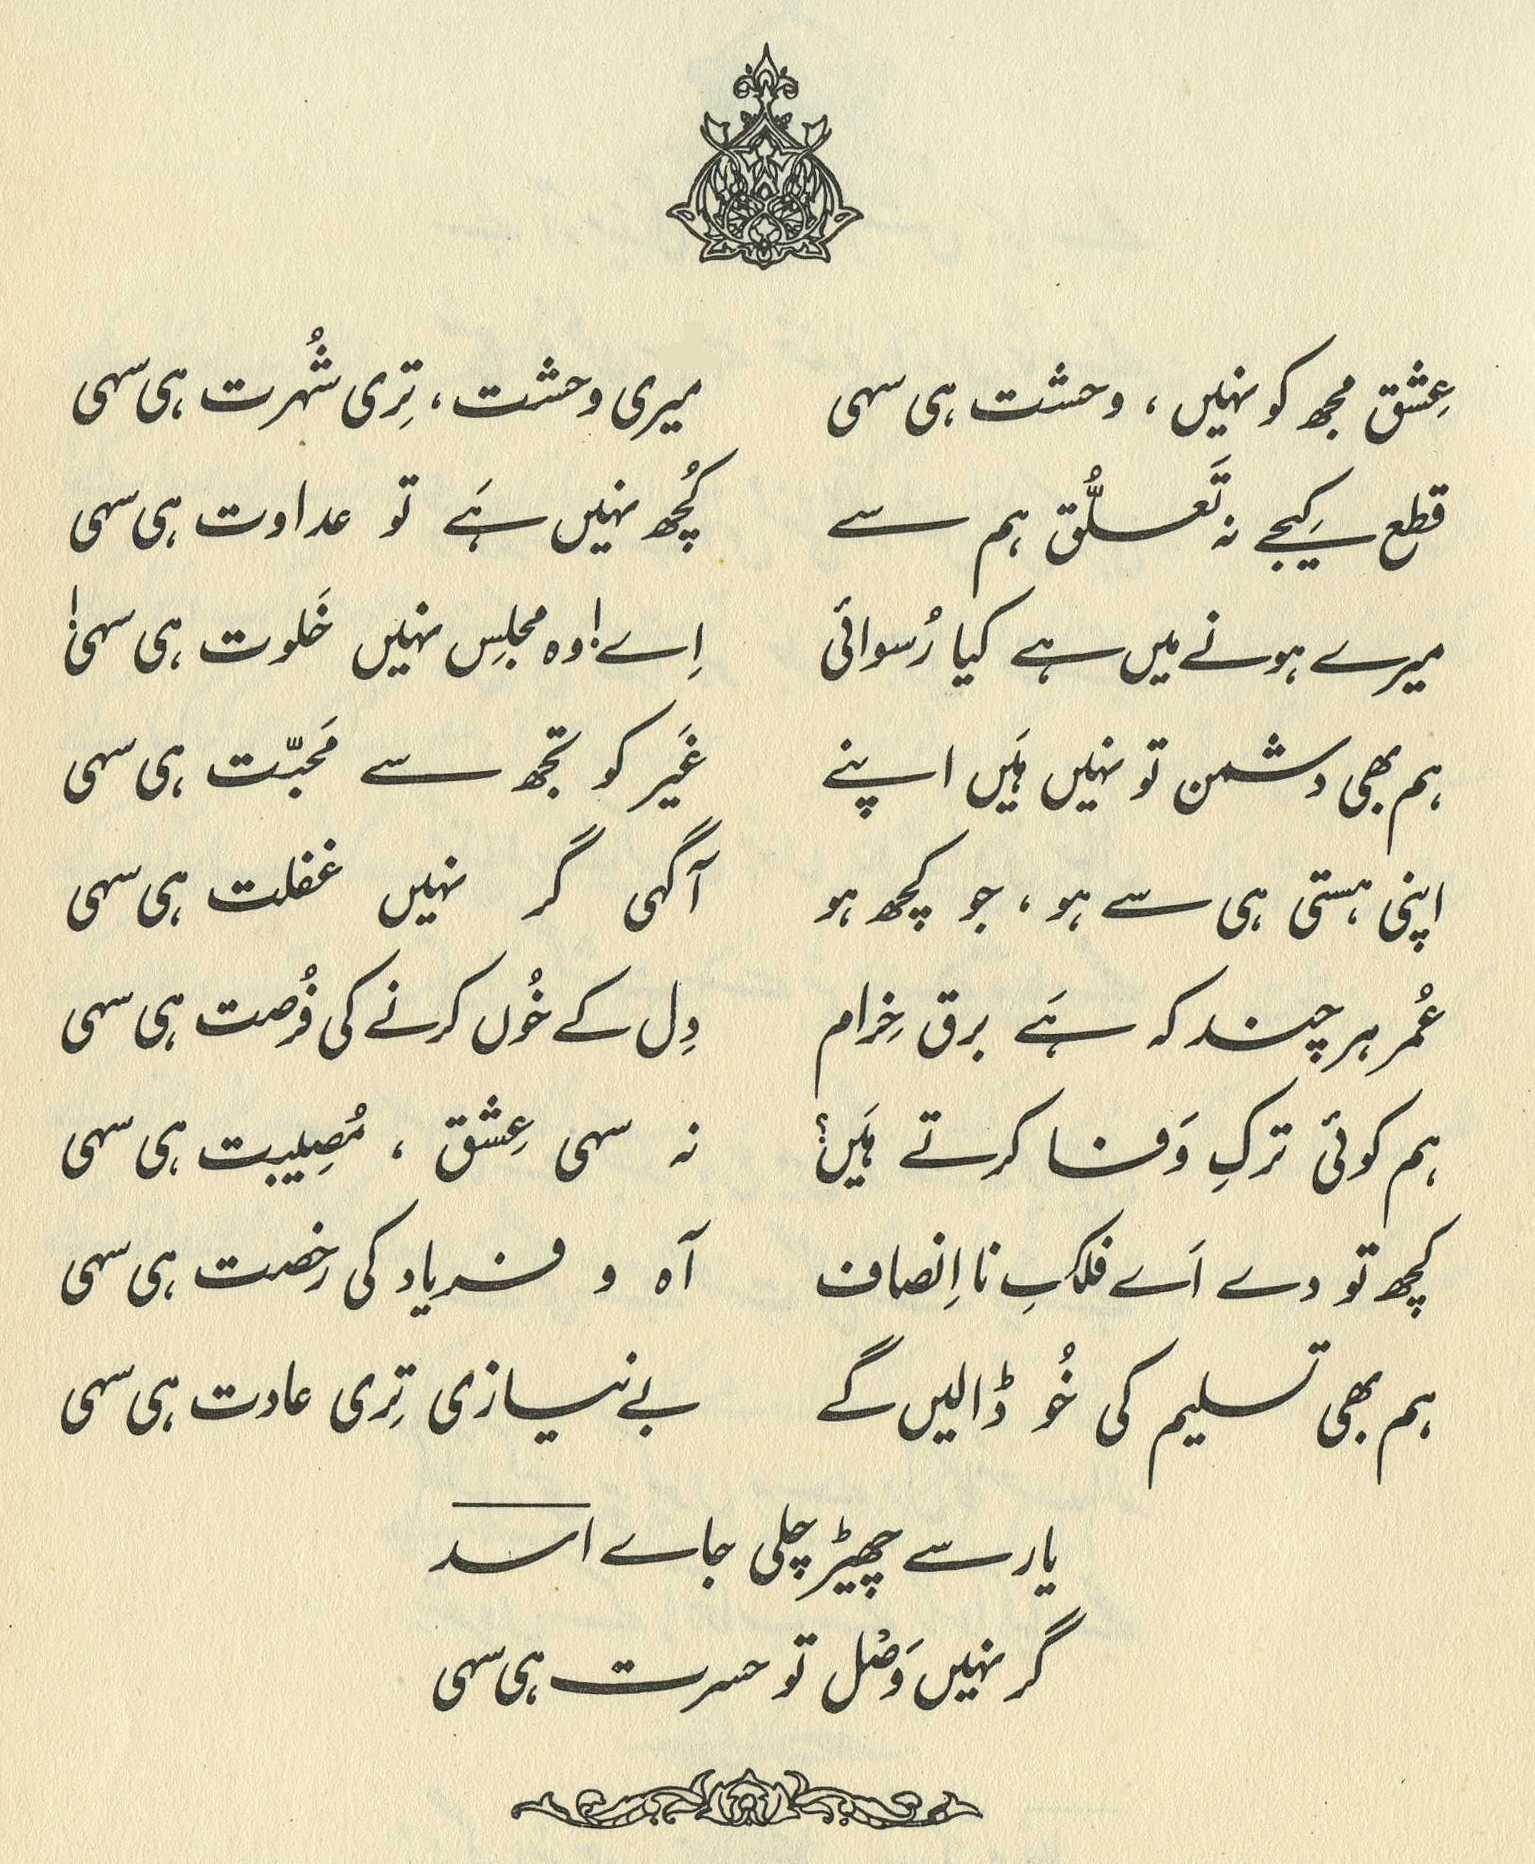 عِشق مجھ کو نہیں، وحشت ہی سہی
میری وحشت، تِری شُہرت ہی سہی
قطع کیجے نہ تَعلُّق ہم سے
کُچھ نہیں ہَے تو عداوت ہی سہی
میرے ہونے میں ہے کیا رُسوائی
اِے! وہ مجلِس نہیں خَلوت ہی سہی!
ہم بھی دشمن تو نہیں ہَیں اپنے
غَیر کو تجھ سے مَحبّت ہی سہی
اپنی ہستی ہی سے ہو، جو کچھ ہو
آگہی گر نہیں غفلت ہی سہی
عُمر ہر چند کہ ہَے برق خِرام
دِل کے خُوں کرنے کی فُرصت ہی سہی
ہم کوئی ترکِ وَفا کرتے ہَیں؟
نہ سہی عِشق، مُصِیبت ہی سہی
کچھ تو دے اَے فلکِ نا اِنصاف
آہ و فریاد کی رخصت ہی سہی
ہم بھی تسلیم کی خُو ڈالیں گے
بے نیازی تِری عادت ہی سہی
یار سے چھیڑ چلی جاے اسد
گر نہیں وَصْل تو حسرت ہی سہی